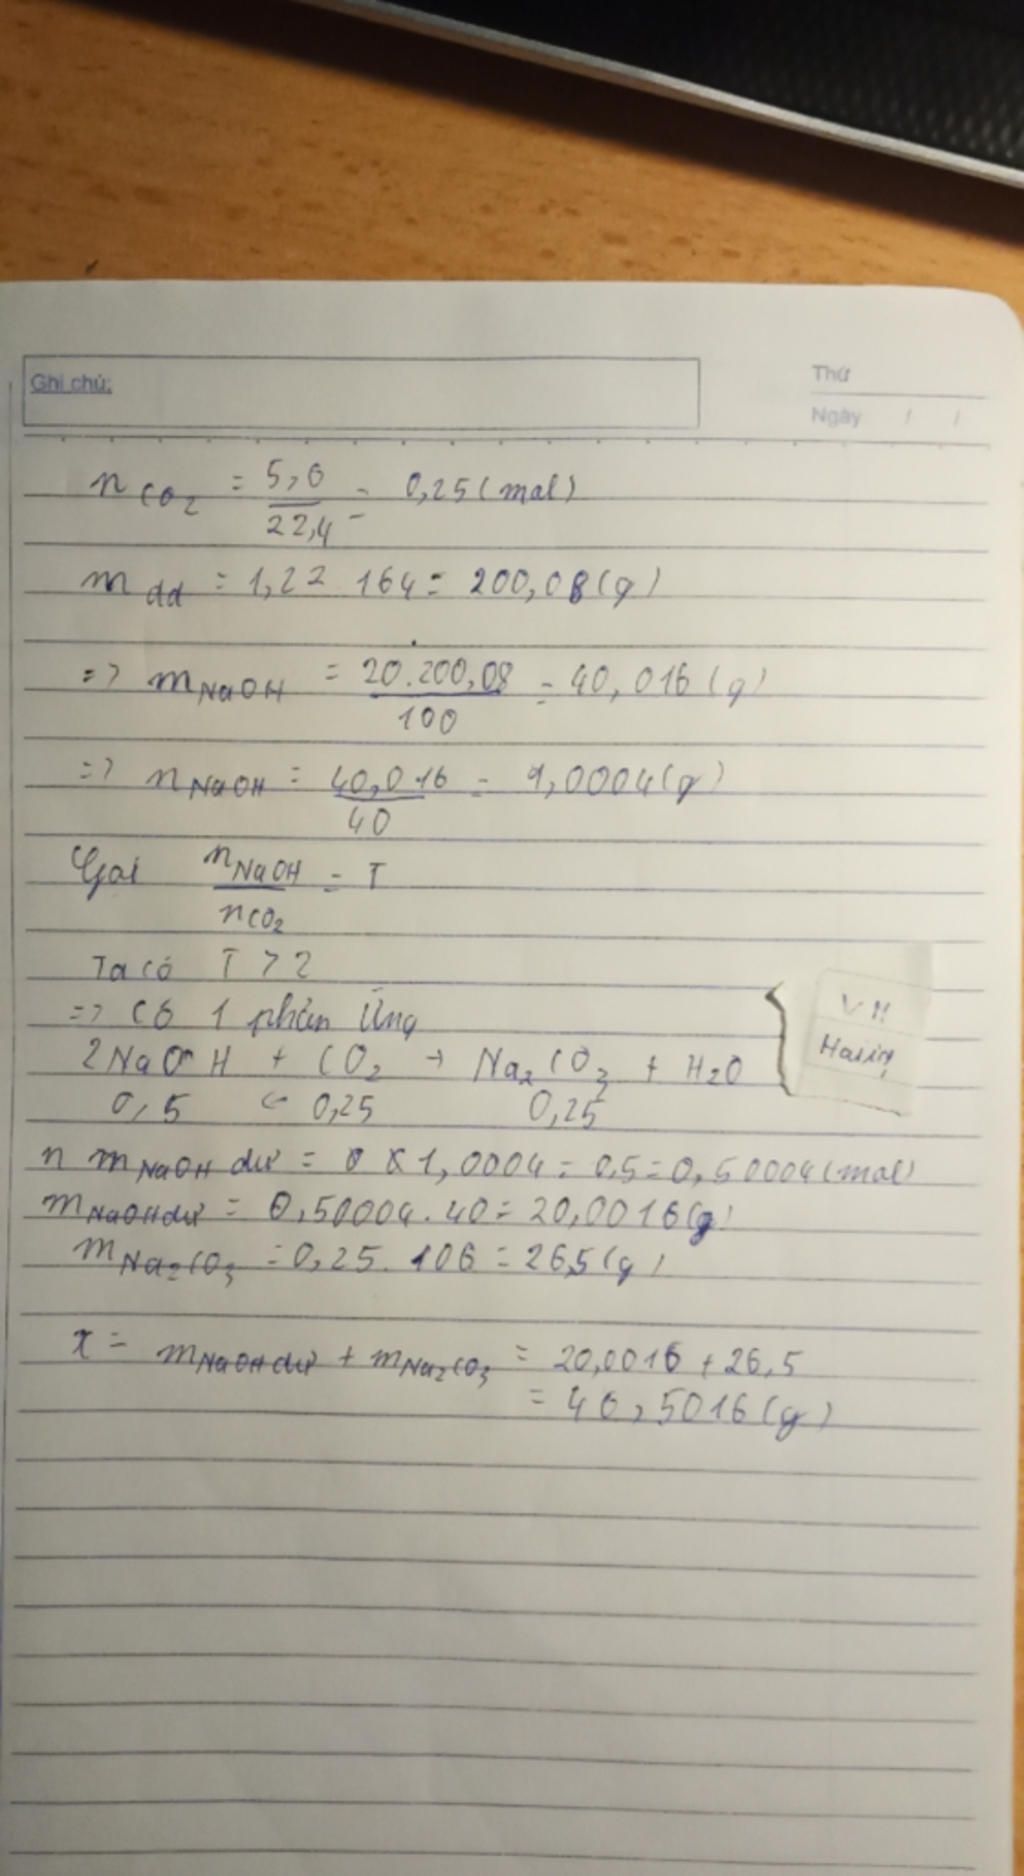 Ghi chú:
Thứ
Ngày / /
n CO2 = 5,6/22,4 = 0,25 (mol)
m dd = 1,22 164 = 200,08 (g)
=> m NaOH = 20.200,08/100 = 40,016 (g)
=> n NaOH = 40,016/40 = 1,0004 (g)
Gọi nNaOH/nCO2 = T
Ta có T > 2
=> Có 1 phản ứng
2NaOH + CO2 → Na2CO3 + H2O
0,5 ← 0,25 0,25
n m NaOH dư = 1,0004 = 0,5 = 0,50004 (mol)
m NaOH dư = 0,50004.40 = 20,0016 (g)
m Na2CO3 = 0,25.106 = 26,5 (g)
x = m NaOH dư + m Na2CO3 = 20,0016 + 26,5
= 46,5016 (g)